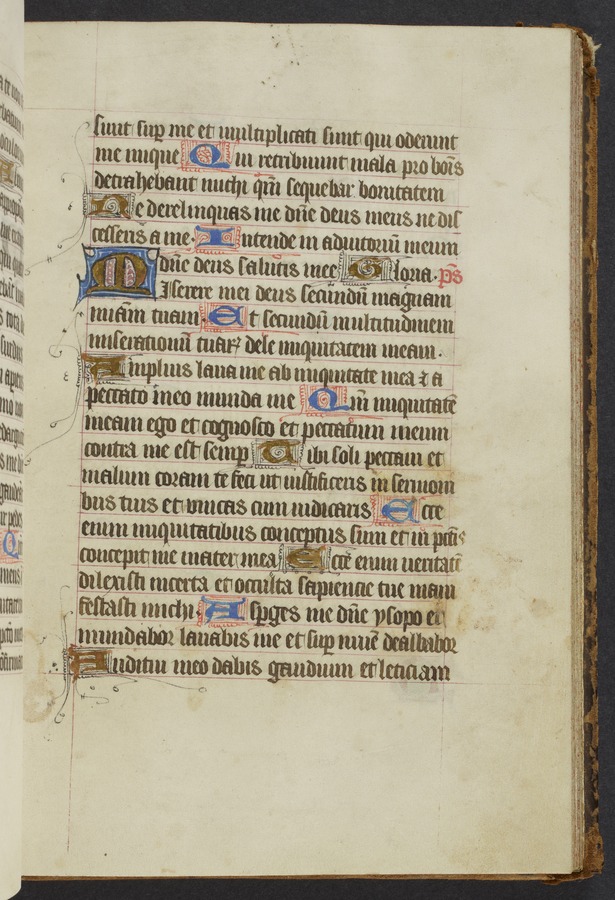 sunt sup me et multiplicati sunt qui oderunt
me inique Qui retribuunt mala pro bōis
detrahebant michi qm̄ sequebar bonitatem
Ne derelinquas me dn̄e deus meus ne dis
cesseris a me. Intende in adiutoriū meum
dn̄e deus salutis mee Gloria. ps̄
Miserere mei deus secundū magnam
miām tuam. Et secundū multitudinem
miserationū tuaꝝ dele iniquitatem meam.
Amplius laua me ab iniquitate mea ⁊ a
peccato meo munda me Qm̄ iniquitatē
meam ego et cognosco et peccatum meum
contra me est semp Tibi soli peccaui et
malum coram te feci ut iustificeris in sermoni
bus tuis et vincas cum iudicaris Ecce
enim iniquitatibus conceptus sum et in pctīs
concepit me mater mea Ecce enim ueritatē
dilexisti incerta et occulta sapiencie tue mani
festasti michi. Asperges me dn̄e ysopo et
mundabor lauabis me et sup niuē dealbabor
Auditui meo dabis gaudium et leticiam